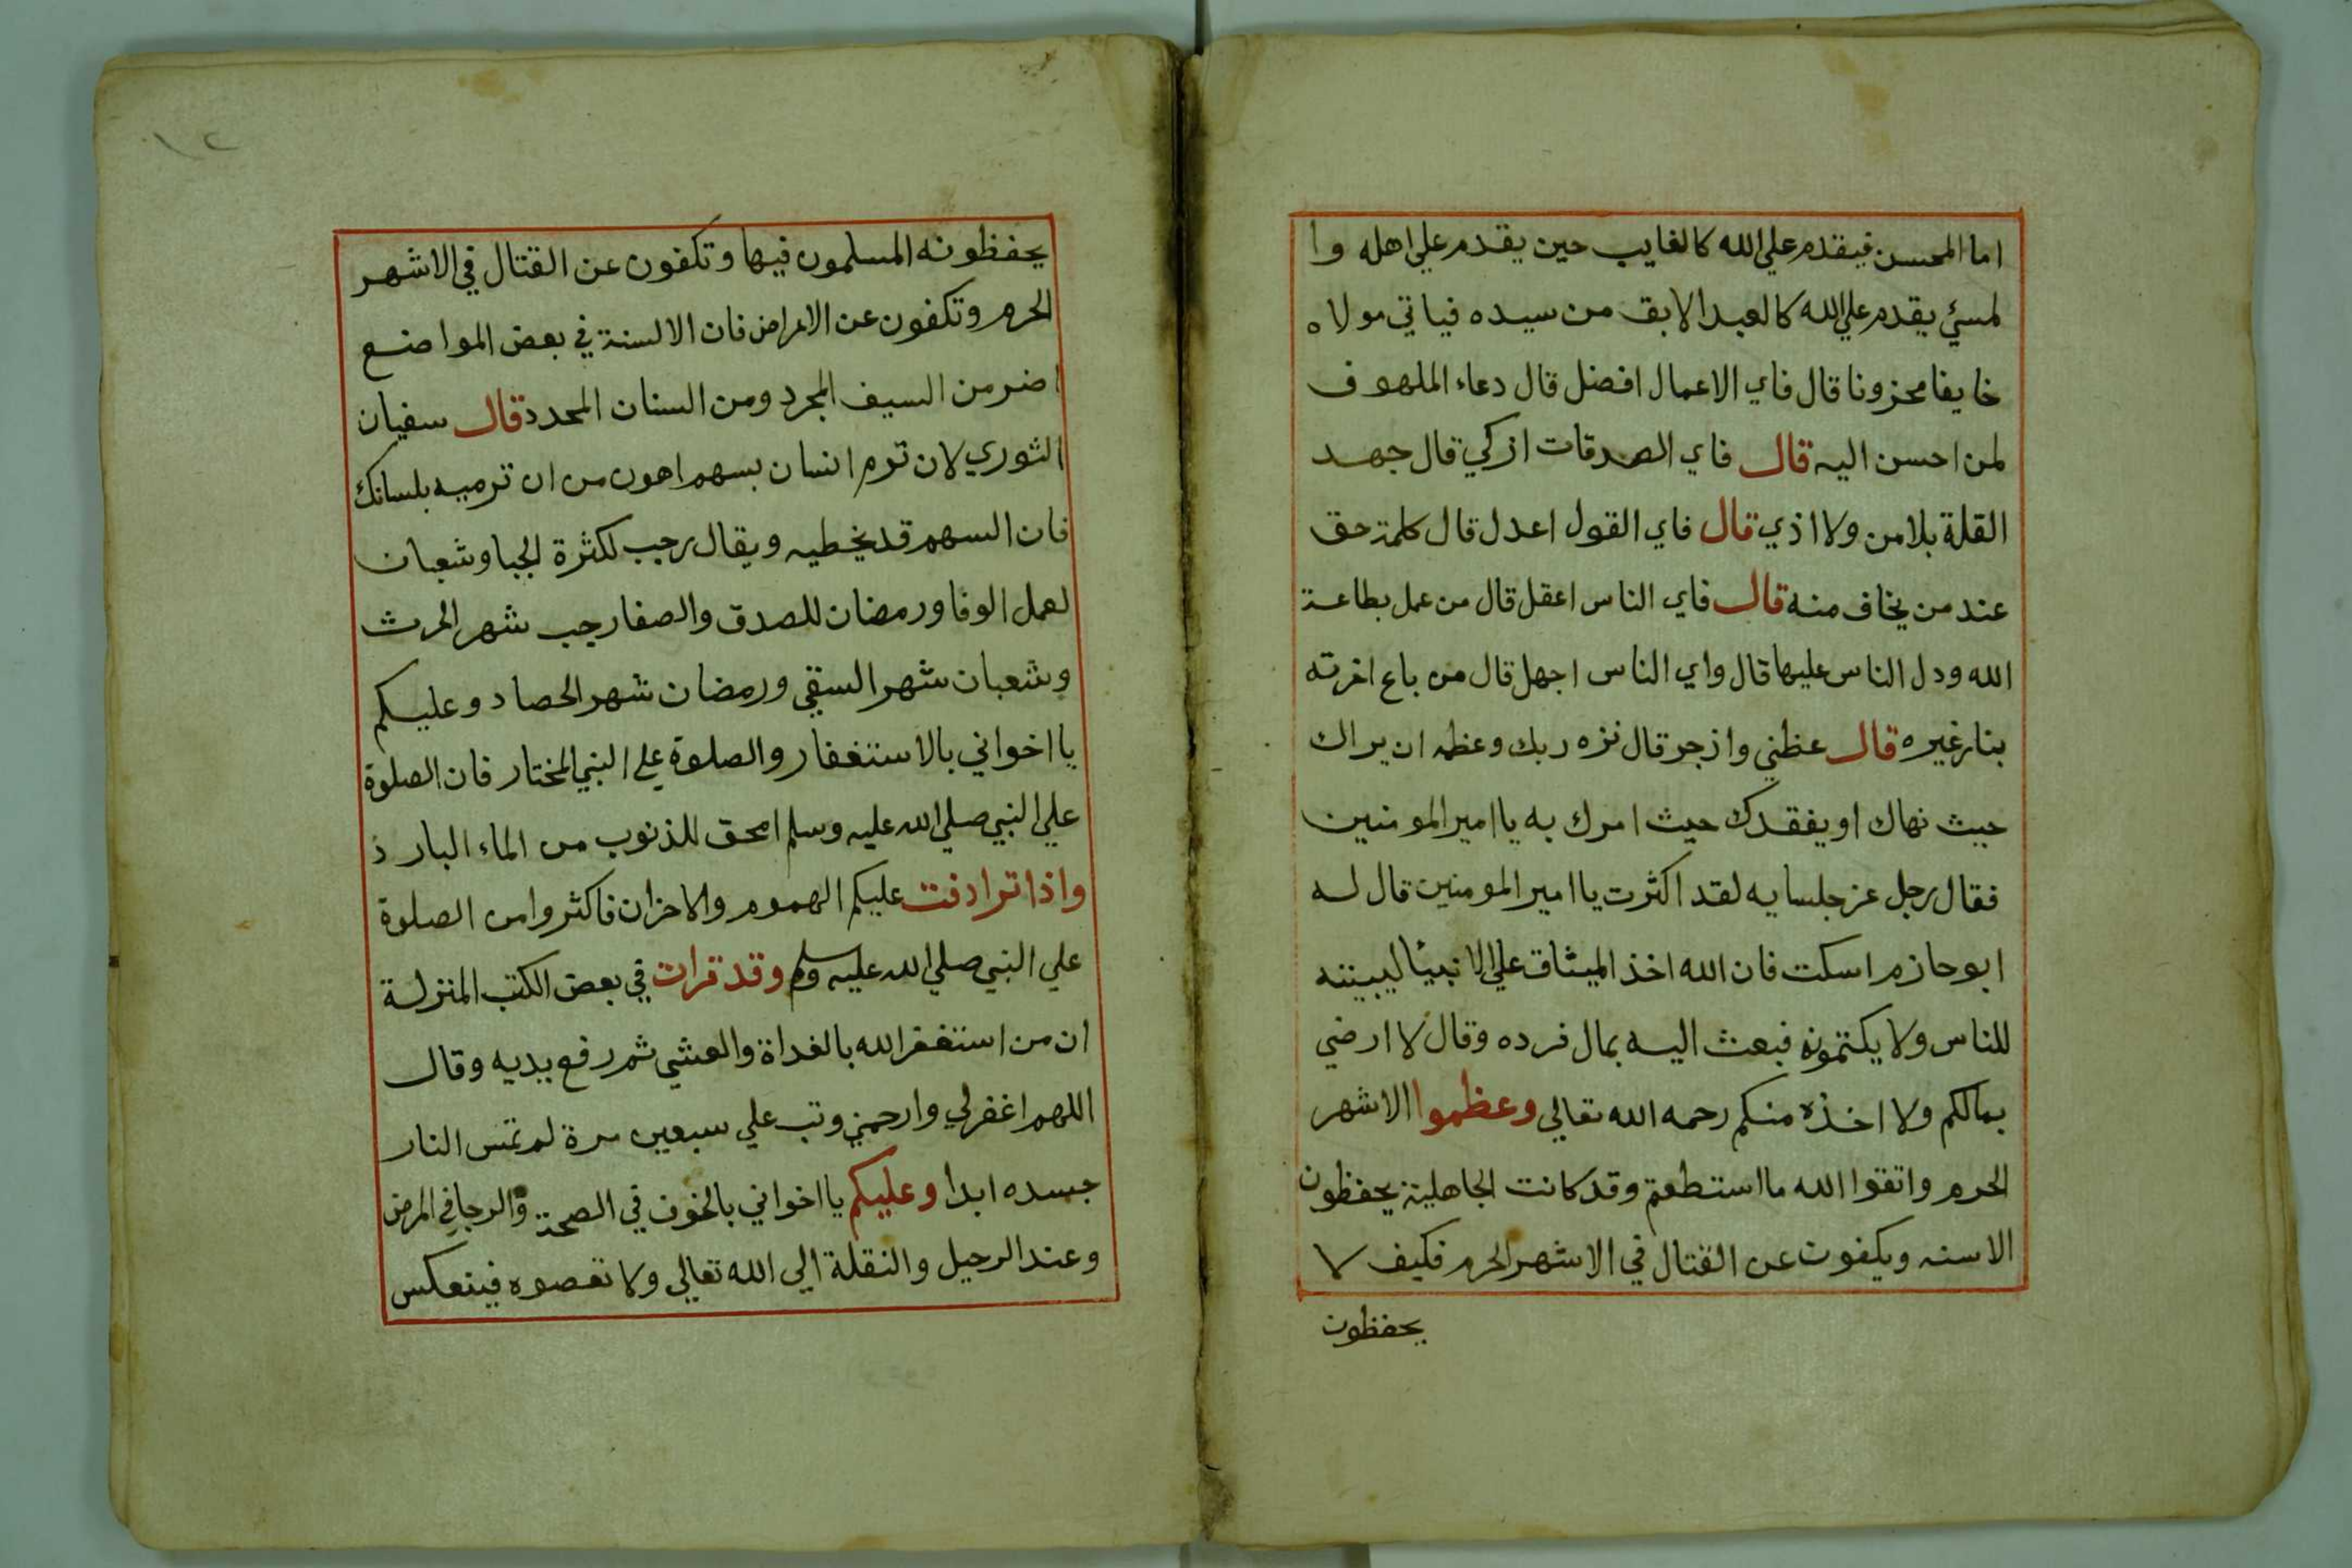 اما المحسن فيقدم علي الله كالغايب حين يقدم علي اهله وا
لمسئ يقدم علي الله كالعبد الابق من سيده فياتي مولاه
خايفا محزونا قال فاي الاعمال افضل قال دعاء الملهوف
لمن احسن اليه قال فاي الصدقات ازكي قال جهد
القلة بلا من ولا اذي قال فاي القول اعدل قال كلمة حق
عند من يخاف منه قال فاي الناس اعقل قال من عمل بطاعة
الله ودل الناس عليها قال واي الناس اجهل قال من باع اخرته
بنار غيره قال عظني وازجر قال نزه ربك وعظمه ان يراك
حيث نهاك او يفقدك حيث امرك به يا امير المومنين
فقال رجل عن جلسايه لقد اكثرت يا امير المومنين قال له
ابو حازم اسكت فان الله اخذ الميثاق علي الانبيئا ليبيننه
للناس ولا يكتمونه فبعث اليه بمال فرده وقال لا ارضي
بمالكم ولا اخذه منكم رحمه الله تعالي وعظموا الاشهر
الحرم واتقوا الله ما استطعتم وقد كانت الجاهلية يحفظون
الاسنه ويكفون عن القتال في الاشهر الحرم فكيف لا
يحفظون
١٢
يحفظونه المسلمون فيها وتكفون عن القتال في الاشهر
الحرم وتكفون عن الاعراض فان الالسنة في بعض المواضع
اضر من السيف المجرد ومن السنان المحدد قال سفيان
الثوري لان ترم انسان بسهم اهون من ان ترميه بلسانك
فان السهم قد يخطيه ويقال رجب لكثرة الجبا وشعبان
لعمل الوفا ورمضان للصدق والصفا رجب شهر الحرث
وشعبان شهر السقي ورمضان شهر الحصاد وعليكم
يا اخواني بالاستغفار والصلوة علي النبي المختار فان الصلوة
علي النبي صلي الله عليه وسلم امحق للذنوب من الماء البارد
واذا ترادفت عليكم الهموم والاحزان فاكثروا من الصلوة
علي النبي صلي الله عليه وسلم وقد قرات في بعض الكتب المنزلة
ان من استغفر الله بالغداة والعشي ثم رفع يديه وقال
اللهم اغفرلي وارحمني وتب علي سبعين مرة لم تمس النار
جسده ابدا وعليكم يا اخواني بالخوف في الصحة والرجا في المرض
وعند الرحيل والنقلة الي الله تعالي ولا تعصوه فينعكس